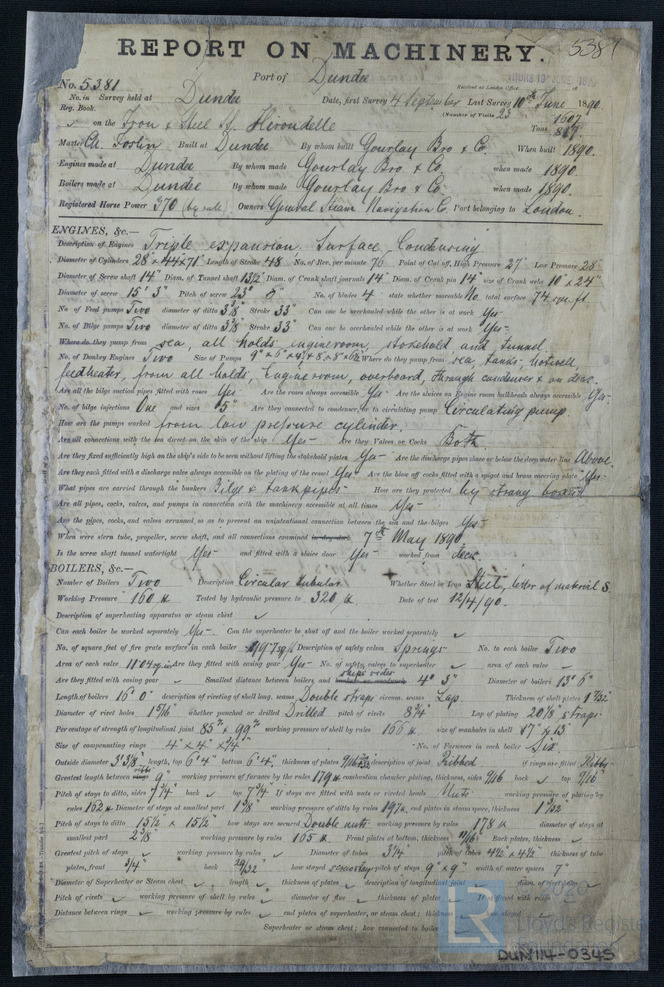 REPORT ON MACHINERY. 5381
No. 5381 Port of Dundee
Received at London Office
No. in Survey held at Dundee Date, first Survey 4 September Last Survey 10th June 1890.
Reg. Book. (Number of Visits 23
on the Iron & Steel Hirondelle Tons 1607
Master Ch. Built at Dundee By whom built Gourlay Bro & Co. When built 1890.
Engines made at Dundee By whom made Gourlay Bro & Co. when made 1890.
Boilers made at Dundee By whom made Gourlay Bro & Co. when made 1890.
Registered Horse Power 370 (by rule) Owners General Steam Navigation Co. Port belonging to London.
ENGINES, &c.—
Description of Engines Triple expansion. Surface Condensing
Diameter of Cylinders 28" x 44" x 71" Length of Stroke 48 No. of Rev. per minute 70 Point of Cut off, High Pressure 27" Low Pressure 28"
Diameter of Screw shaft 14" Diam. of Tunnel shaft 13½" Diam. of Crank shaft journals 14" Diam. of Crank pin 14" size of Crank webs 10" x 24"
Diameter of screw 15' 3" Pitch of screw 23' 0" No. of blades 4 state whether moveable No total surface 74 sqr. ft.
No. of Feed pumps Two diameter of ditto 3⅜" Stroke 33" Can one be overhauled while the other is at work Yes
No. of Bilge pumps Two diameter of ditto 3⅜" Stroke 33" Can one be overhauled while the other is at work Yes
Where do they pump from sea, all holds, engineroom, stokehold and tunnel.
No. of Donkey Engines Two Size of Pumps Where do they pump from sea, tanks, hotwell
feedheater, from all holds, Engineroom, overboard, through condenser & on deck.
Are all the bilge suction pipes fitted with roses Yes Are the roses always accessible Yes Are the sluices on Engine room bulkheads always accessible Yes
No. of bilge injections One and sizes 5" Are they connected to condenser, or to circulating pump Circulating pump
How are the pumps worked from low pressure cylinder.
Are all connections with the sea direct on the skin of the ship Yes Are they Valves or Cocks Both
Are they fixed sufficiently high on the ship's side to be seen without lifting the stokehold plates Yes Are the discharge pipes above or below the deep water line Above
Are they each fitted with a discharge valve always accessible on the plating of the vessel Yes Are the blow off cocks fitted with a spigot and brass covering plate Yes
What pipes are carried through the bunkers Bilge & tank pipes How are they protected by strong boards
Are all pipes, cocks, valves, and pumps in connection with the machinery accessible at all times Yes
Are the pipes, cocks, and valves arranged so as to prevent an unintentional connection between the sea and the bilges Yes
When were stern tube, propeller, screw shaft, and all connections examined in dry dock 7th May 1890
Is the screw shaft tunnel watertight Yes and fitted with a sluice door Yes worked from deck.
BOILERS, &c.—
Number of Boilers Two Description Circular tubular Whether Steel or Iron Steel, letter of material S.
Working Pressure 160 lb Tested by hydraulic pressure to 320 lb Date of test 12/4/90.
Description of superheating apparatus or steam chest ✓
Can each boiler be worked separately Yes Can the superheater be shut off and the boiler worked separately ✓
No. of square feet of fire grate surface in each boiler Description of safety valves Springs No. to each boiler Two
Area of each valve 11.04 sq in Are they fitted with easing gear Yes No. of safety valves to superheater ✓ area of each valve
Are they fitted with easing gear ✓ Smallest distance between boilers and ships sides 4' 3" Diameter of boilers 13' 6"
Length of boilers 16' 0" description of riveting of shell long. seams Double straps circum. seams Lap Thickness of shell plates 1 7/32"
Diameter of rivet holes 1 5/16" whether punched or drilled Drilled pitch of rivets 8¾" Lap of plating 20⅛" straps
Per centage of strength of longitudinal joint 85% & 99% working pressure of shell by rules 166 lb size of manholes in shell 17" x 13"
Size of compensating rings 4" x 4" x ¾" No. of Furnaces in each boiler Six
Outside diameter 3' 3⅜" length, top 6' 4" bottom 6' 4" thickness of plates 9/16 description of joint Ribbed if rings are fitted Ribs
Greatest length between ribs 9" working pressure of furnace by the rules 179 lb combustion chamber plating, thickness, sides 9/16 back ✓ top 9/16
Pitch of stays to ditto, sides 7¾" back ✓ top 7¾" If stays are fitted with nuts or riveted heads Nuts working pressure of plating by
rules 162 lb Diameter of stays at smallest part 1⅜" working pressure of ditto by rules 197 lb end plates in steam space, thickness 1 1/32"
Pitch of stays to ditto 15½" x 15½" how stays are secured Double nuts working pressure by rules 178 lb diameter of stays at
smallest part 2⅝" working pressure by rules 165 lb Front plates at bottom, thickness 11/16" Back plates, thickness ✓
Greatest pitch of stays ✓ working pressure by rules ✓ Diameter of tubes 3¼" pitch of tubes 4½" x 4½" thickness of tube
plates, front ¾" back 29/32" how stayed pitch of stays 9" x 9" width of water spaces 7"
Diameter of Superheater or Steam chest ✓ length ✓ thickness of plates ✓ description of longitudinal joint diam. of rivet holes
Pitch of rivets ✓ working pressure of shell by rules ✓ diameter of flue ✓ thickness of plates If stiffened with rings
Distance between rings ✓ working pressure by rules ✓ end plates of superheater, or steam chest; thickness
Superheater or steam chest; how connected to boiler
LR
© 2020
Lloyd's Register
DUN114-0345